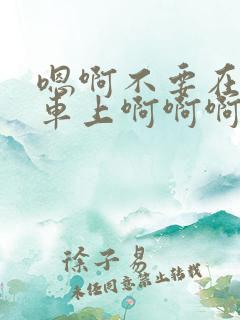 嗯啊不要在
車上啊啊啊
徐子易
未經同意禁止轉載